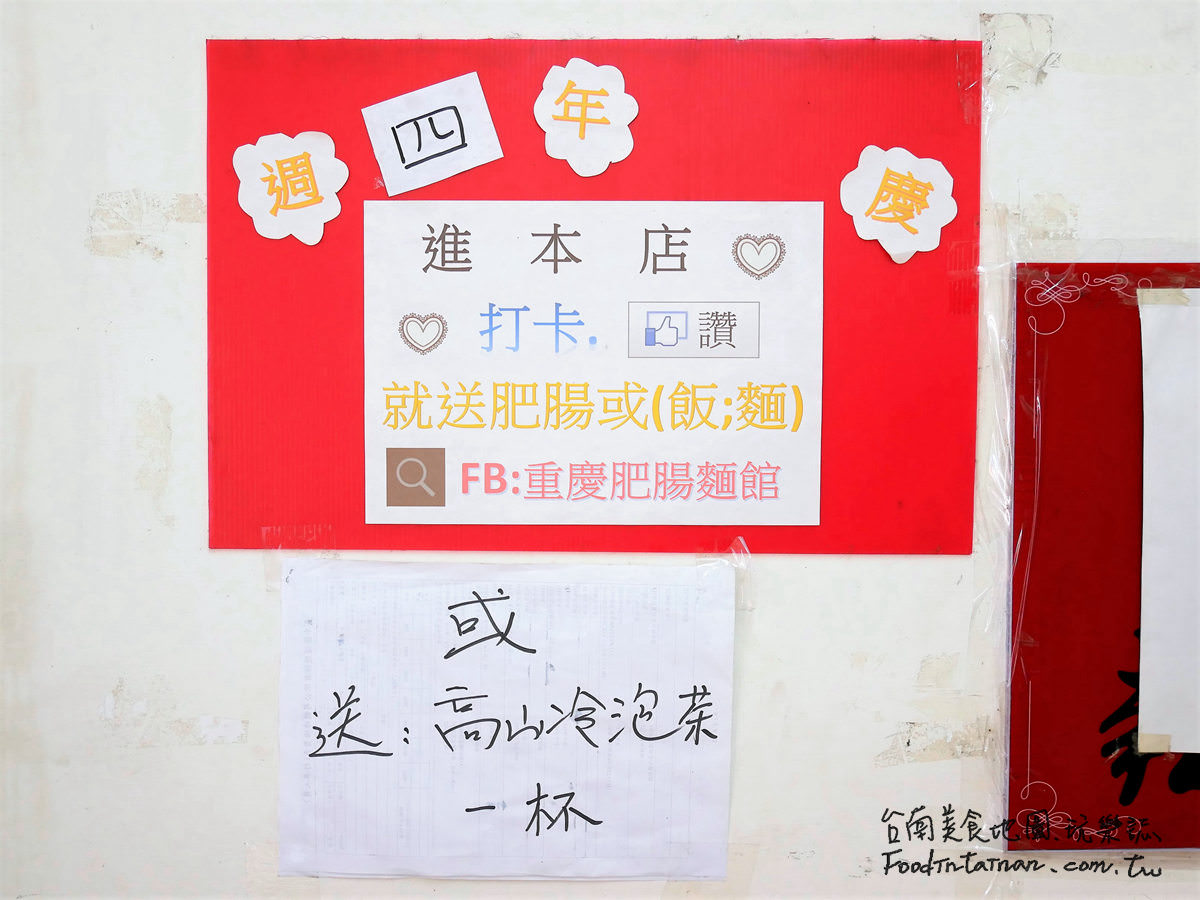 週四年慶
進本店
打卡. 讚
就送肥腸或(飯;麵)
FB:重慶肥腸麵館
或
送:高山冷泡茶
一杯
台南美食地圖.玩樂誌
FoodInTainan.com.tw